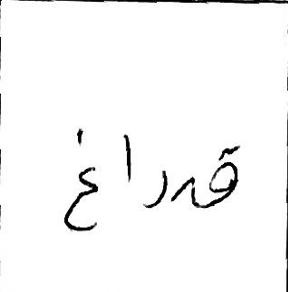 قدراغ